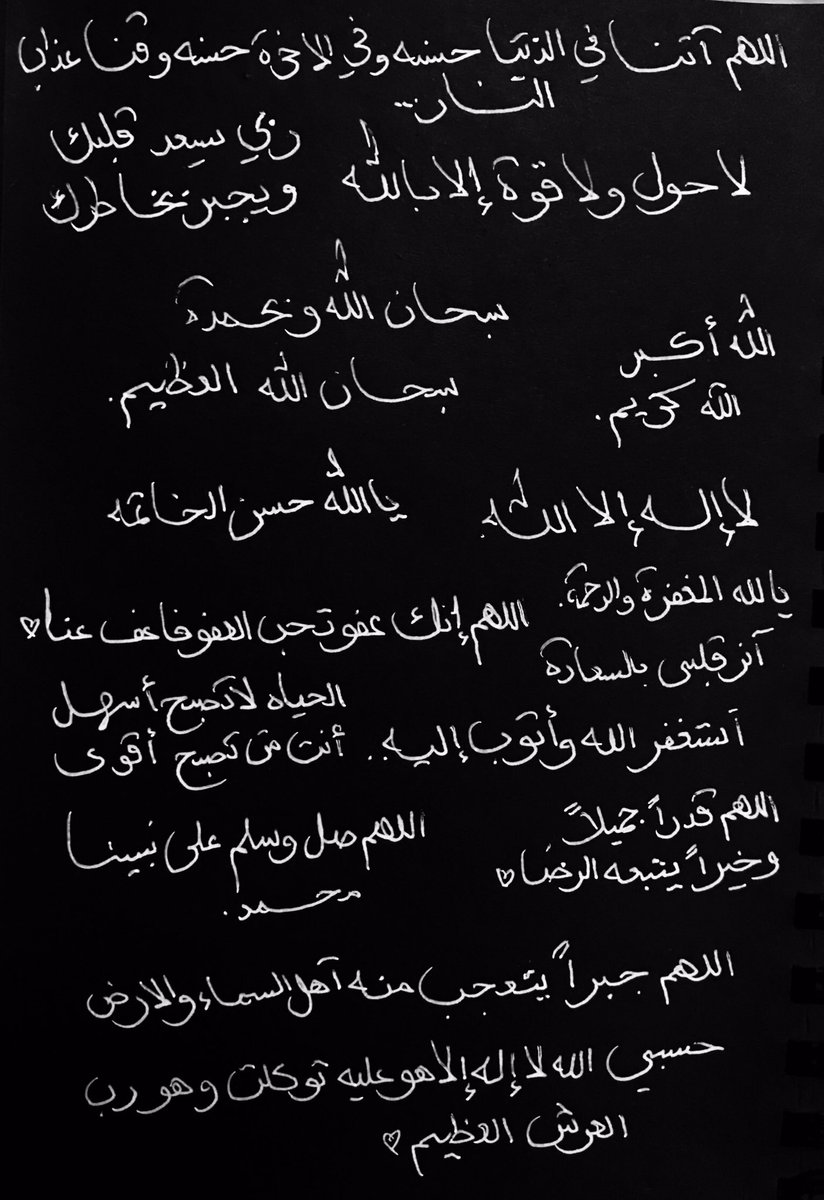 اللهم آتنا في الدنيا حسنه وفي الاخرة حسنه وقنا عذاب
النار..
ربي يسعد قلبك
لا حول ولا قوة إلا بالله
ويجبر بخاطرك
سبحان الله وبحمدة
الله أكبر
سبحان الله العظيم.
الله كريم.
لا إله إلا الله.
يا الله حسن الخاتمه
يا لله المغفرة والرحمة.
اللهم إنك عفو تحب العفو فاعف عنا♡
آنر قلبي بالسعادة
الحياه لا تصبح أسهل
أستغفر الله وأتوب إليه..
أنت من تصبح أقوى
اللهم قدراً جميلاً
وخيراً يتبعه الرضا♡
اللهم صل وسلم على نبينا
محمد.
اللهم جبراً يتعجب منه آهل السماء والارض
حسبي الله لا إله إلا هو عليه توكلت وهو رب
العرش العظيم♡